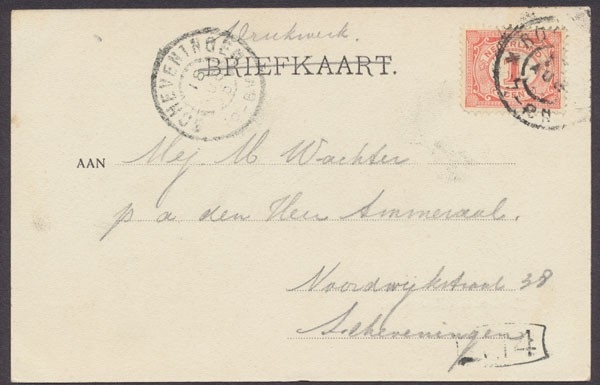 Drukwerk.
SCHEVENINGEN
BRIEFKAART.
1
AAN Mej M Wachter
p a den Heer Ammeraal.
Noordwijkstraat 38
Scheveningen